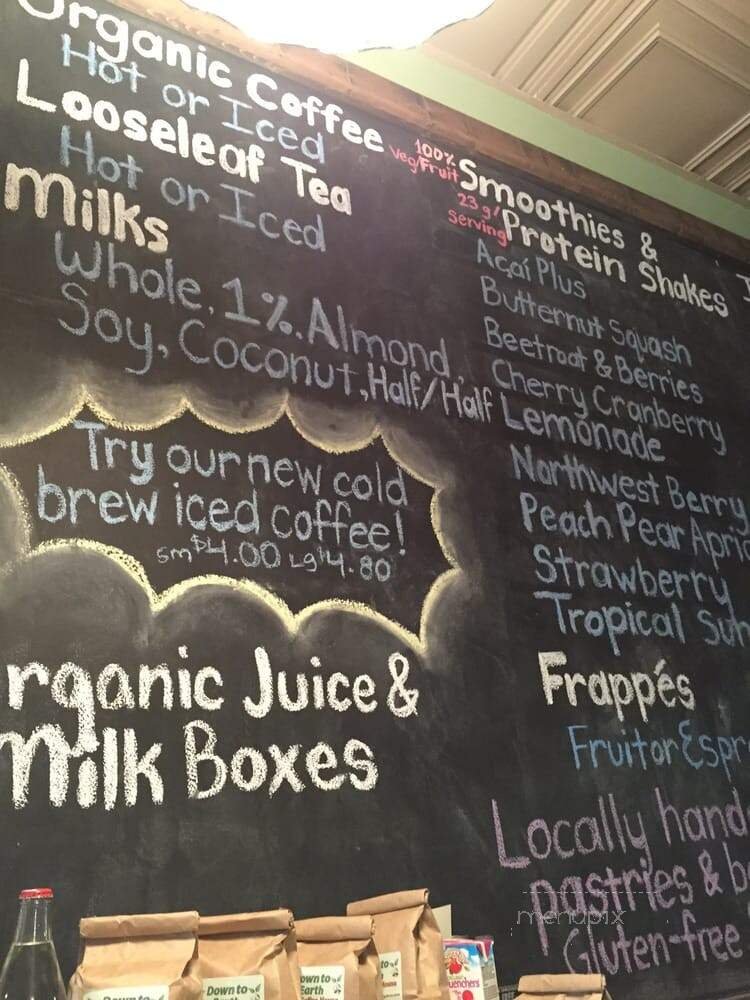 Organic Coffee
Hot or Iced
Looseleaf Tea
Hot or Iced
Milks
Whole, 1%, Almond,
Soy, Coconut, Half/Half
Try our new cold
brew iced coffee!
sm $4.00 Lg $4.80
rganic Juice &
Milk Boxes
100%
veg/Fruit
23 g/
serving
Smoothies &
Protein Shakes
Açaí Plus
Butternut Squash
Beetroot & Berries
Cherry Cranberry
Lemonade
Northwest Berry
Peach Pear Apri
Strawberry
Tropical Sun
Frappés
Fruit or Espr
Locally hand
pastries & b
Gluten-free
menupix
Down to
Earth
own to
Earth